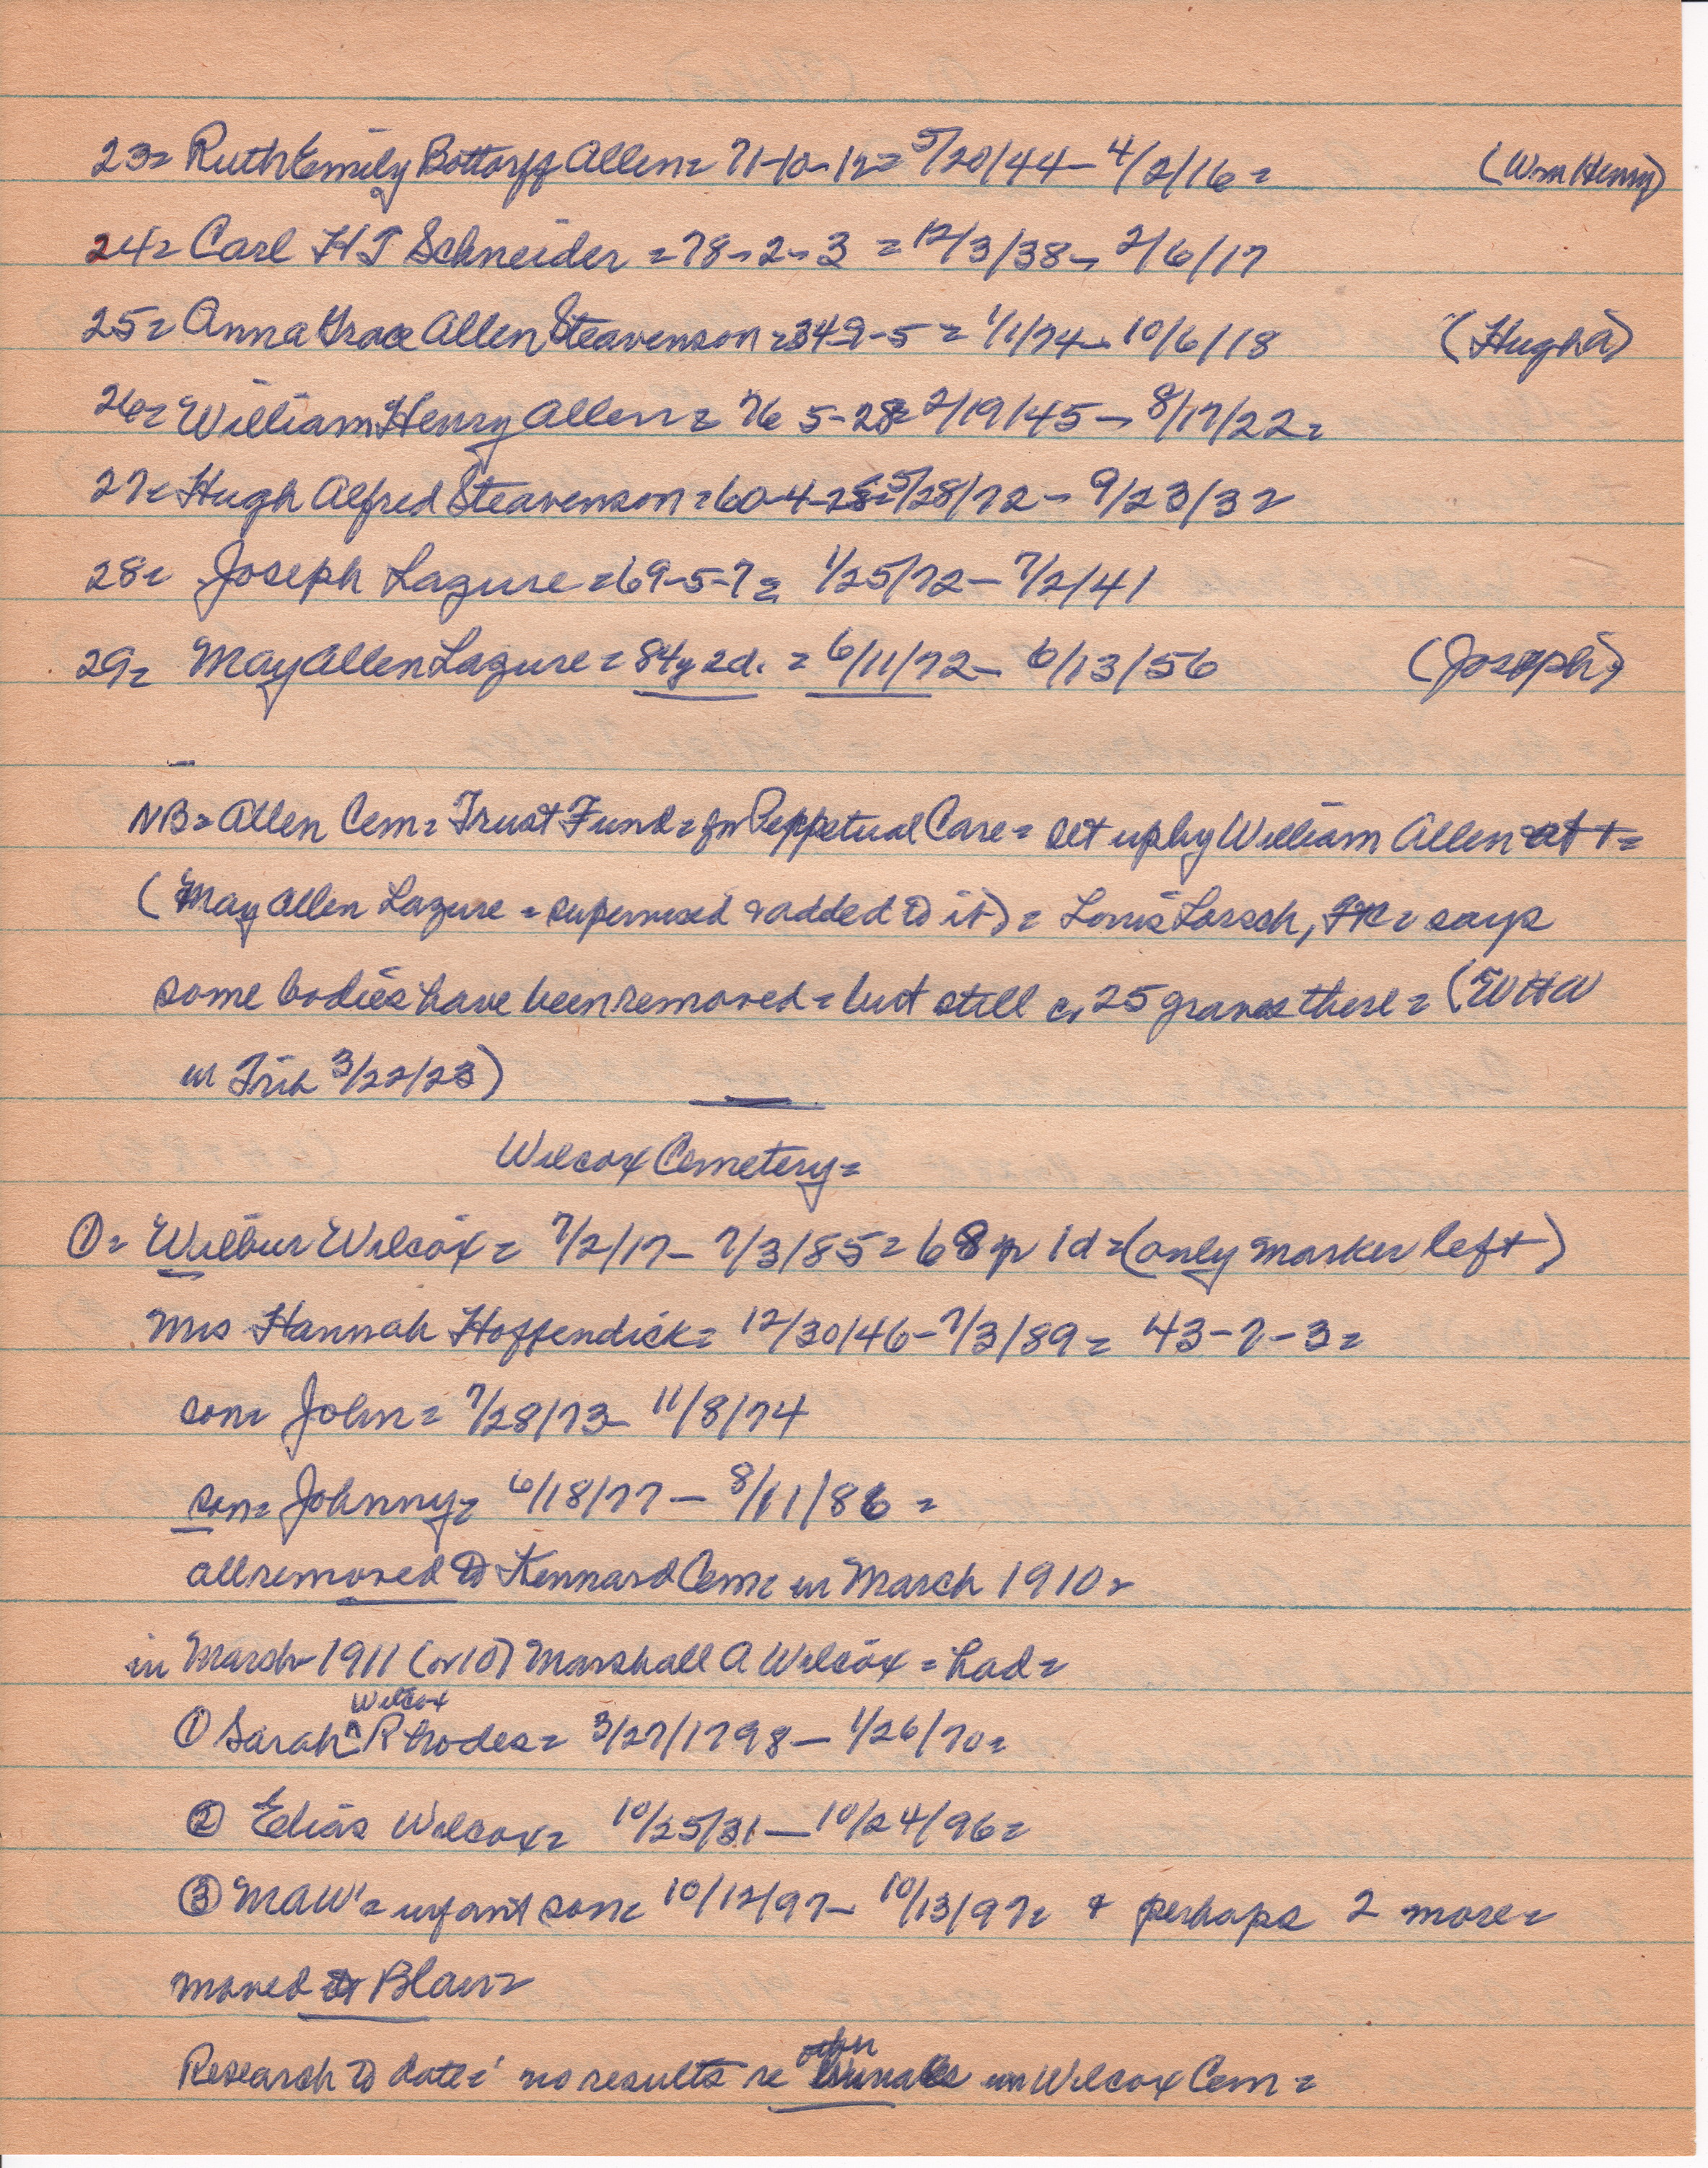 23= Ruth Emily Bottorff Allen= 71-10-12= 5/20/44- 4/2/16= (Wm Henry)
24= Carl H J Schneider =78-2-3 = 12/3/38- 2/6/17
25= Anna Grace Allen Steavenson =34-9-5 = 1/1/74- 10/6/18 (Hugh A)
26= William Henry Allen = 76 5-28= 2/19/45- 8/17/22=
27= Hugh Alfred Steavenson =60-4-25= 5/28/72- 9/23/32
28= Joseph Lazure =69-5-7= 1/25/72- 7/2/41
29= May Allen Lazure = 84y 2d. = 6/11/72- 6/13/56 (Joseph)
NB= Allen Cem= Trust Fund= for Peppetual Care= set up by William Allen
(May Allen Lazure = supervised & added to it)= Louis Lorsch, Jr= says
some bodies have been removed= but still c. 25 graves there= (WHW
in Trib 3/22/23)
Wilcox Cemetery=
①= Wilbur Wilcox= 7/2/17- 7/3/85= 68 yr 1d =(only marker left)
Mrs Hannah Hoffendick= 12/30/46-7/3/89= 43-7-3=
son= John= 7/28/73- 11/8/74
son= Johnny= 6/18/77- 8/11/86=
all removed to Kennard Cem= in March 1910=
in March 1911 (or 10) Marshall A Wilcox = had=
① Sarah ^Wilcox Rhodes= 3/27/1798- 1/26/70=
② Elias Wilcox= 10/25/31-10/24/96=
③ MAW's infant son= 10/12/97- 10/13/97= & perhaps 2 more=
moved to Blair=
Research to date= no results re other burials in Wilcox Cem=